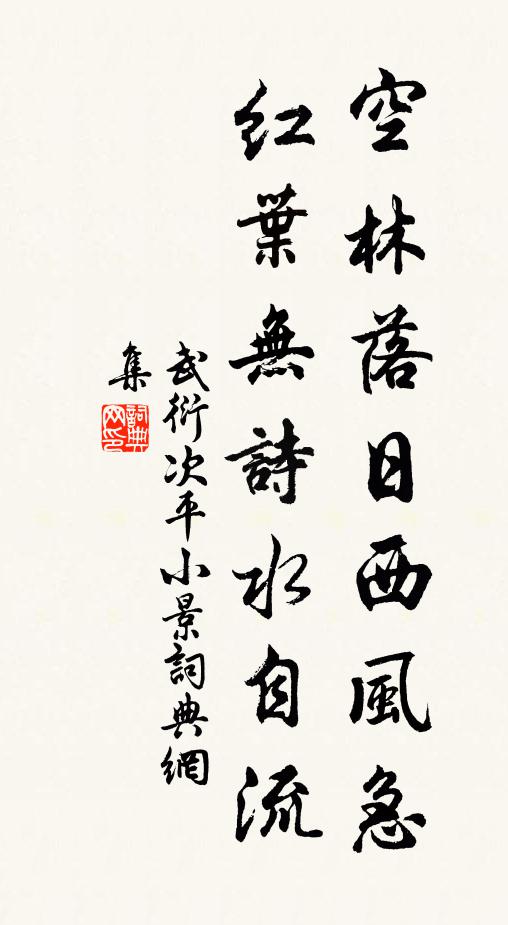 空林落日西風急
紅葉無詩水自流
武衍次平小景詞典網
集
詞典
网印